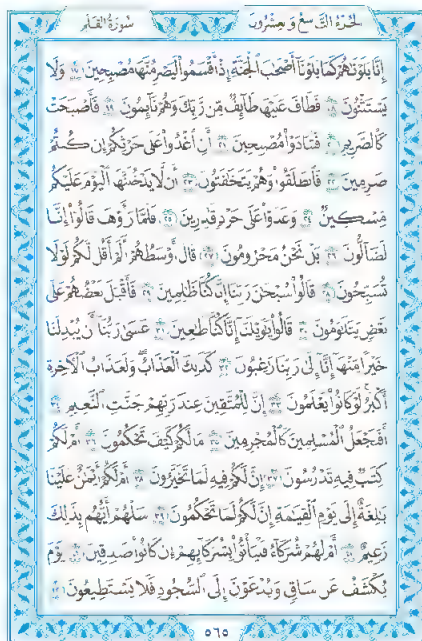 الجزء التاسع وعشرون سورة القلم
إنا بلوناهم كما بلونا أصحاب الجنة إذ أقسموا ليصرمنها مصبحين ١٧ ولا
يستثنون ١٨ فطاف عليها طائف من ربك وهم نائمون ١٩ فأصبحت
كالصريم ٢٠ فتنادوا مصبحين ٢١ أن اغدوا على حرثكم إن كنتم
صرمين ٢٢ فانطلقوا وهم يتخافتون ٢٣ أن لا يدخلنها اليوم عليكم
مسكين ٢٤ وغدوا على حرد قدرين ٢٥ فلما رأوها قالوا إنا
لضالون ٢٦ بل نحن محرومون ٢٧ قال أوسطهم ألم أقل لكم لولا
تسبحون ٢٨ قالوا سبحن ربنا إنا كنا ظلمين ٢٩ فأقبل بعضهم على
بعض يتلومون ٣٠ قالوا يويلنا إنا كنا طغين ٣١ عسى ربنا أن يبدلنا
خيرا منها إنا إلى ربنا رغبون ٣٢ كذلك العذاب ولعذاب الآخرة
أكبر لو كانوا يعلمون ٣٣ إن للمتقين عند ربهم جنت النعيم ٣٤
أفنجعل المسلمين كالمجرمين ٣٥ ما لكم كيف تحكمون ٣٦ أم لكم
كتب فيه تدرسون ٣٧ إن لكم فيه لما تخيرون ٣٨ أم لكم أيمن علينا
بلغة إلى يوم القيمة إن لكم لما تحكمون ٣٩ سلهم أيهم بذلك
زعيم ٤٠ أم لهم شركاء فليأتوا بشركائهم إن كانوا صدقين ٤١ يوم
يكشف عن ساق ويدعون إلى السجود فلا يستطيعون ٤٢
٥٦٥